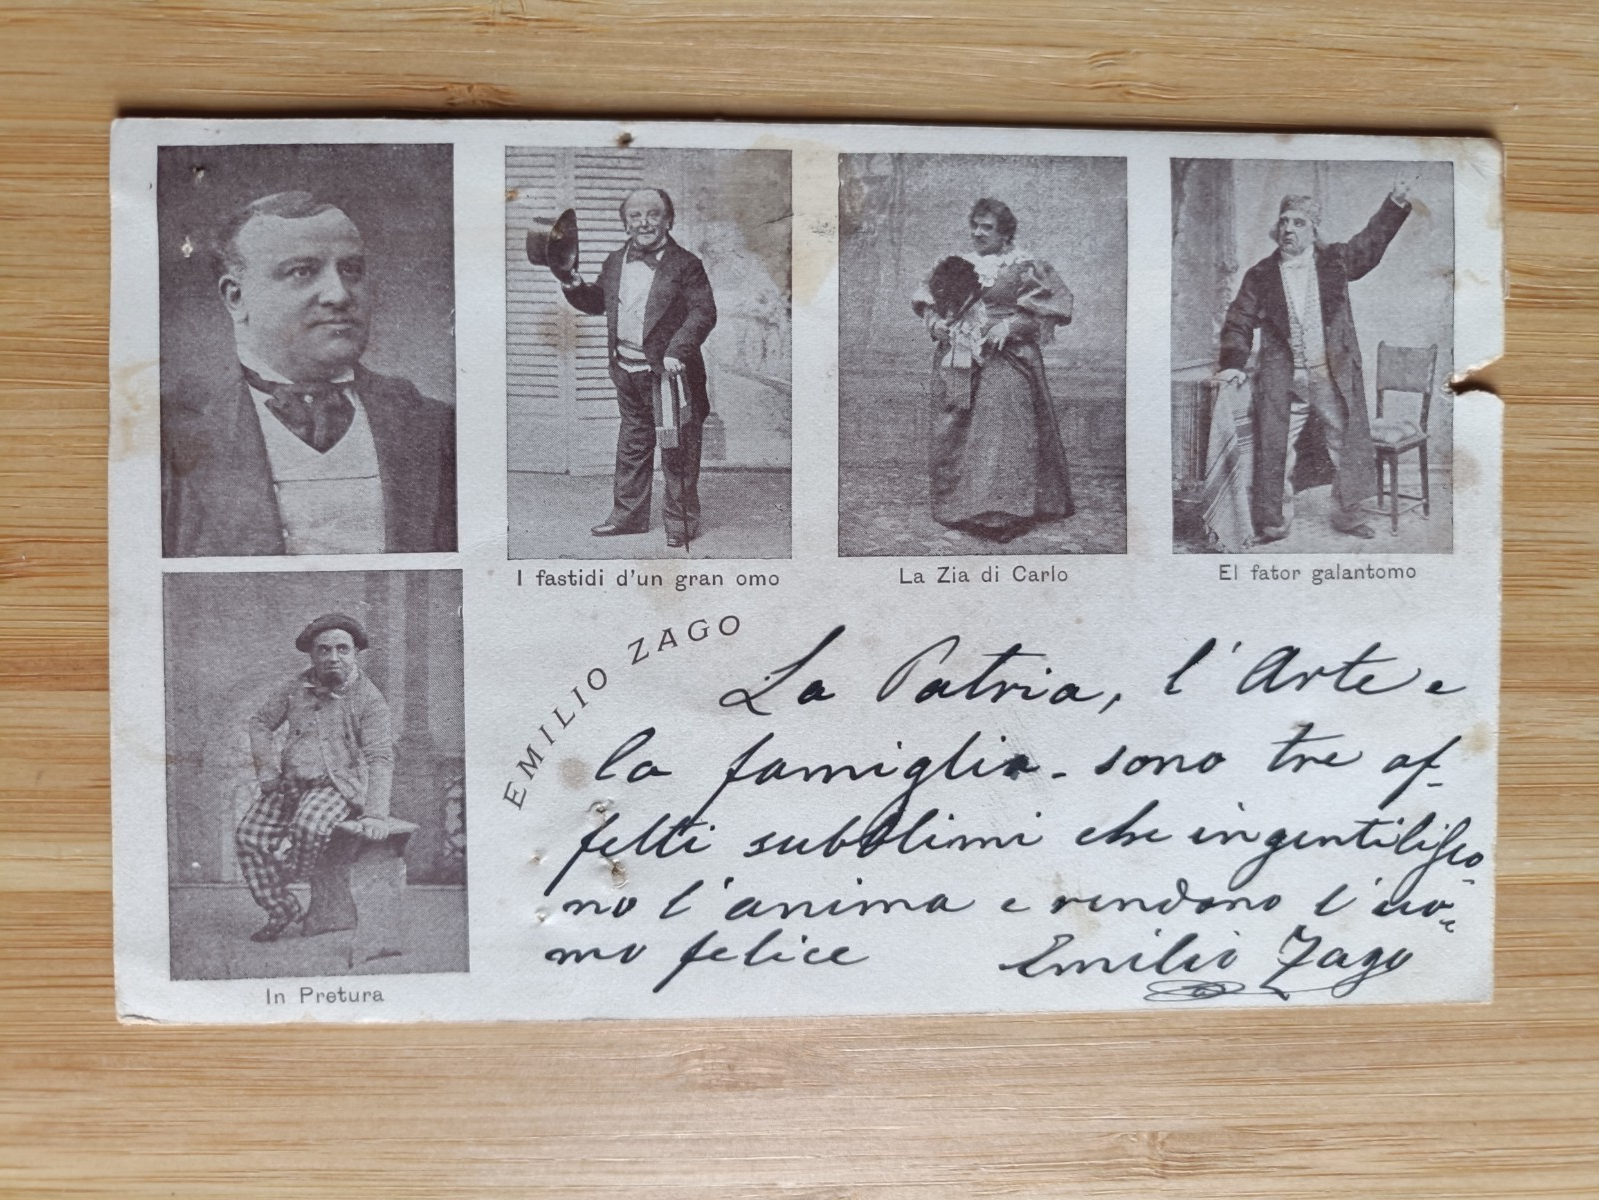 I fastidi d'un gran omo
La Zia di Carlo
El fator galantomo
In Pretura
EMILIO ZAGO
La Patria, l'Arte e
la famiglia - sono tre af-
fetti subblimi che ingentilisco-
no l'anima e rendono l'uo-
mo felice
Emilio Zago